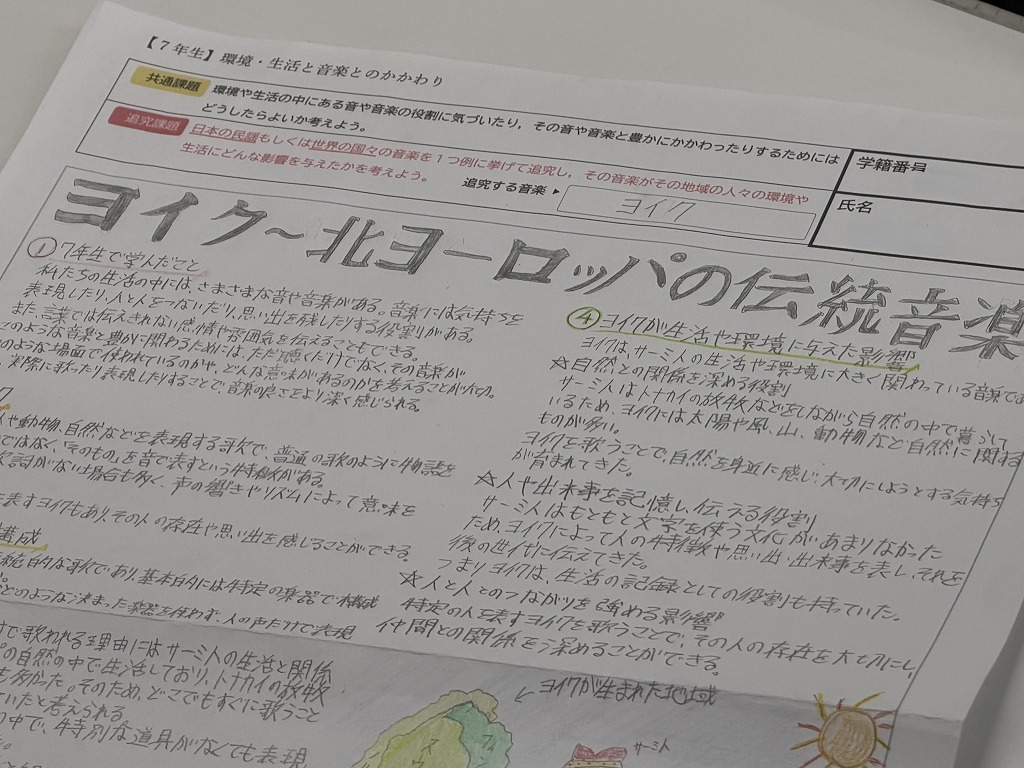 【7年生】環境・生活と音楽とのかかわり
共通課題 環境や生活の中にある音や音楽の役割に気づいたり，その音や音楽と豊かにかかわったりするためには
どうしたらよいか考えよう。
追究課題 日本の民謡もしくは世界の国々の音楽を1つ例に挙げて追究し，その音楽がその地域の人々の環境や
生活にどんな影響を与えたかを考えよう。
追究する音楽▶ ヨイク
学籍番号
氏名
ヨイク～北ヨーロッパの伝統音楽
① 7年生で学んだこと
私たちの生活の中には、さまざまな音や音楽がある。音楽には気持ちを
表現したり、人と人をつないだり、思い出を残したりする役割がある。
また、言葉では伝えきれない感情や雰囲気を伝えることもできる。
このような音楽と豊かに関わるためには、ただ聴くだけでなく、その音楽が
のような場面で使われているのかや、どんな意味があるのかを考えることが大切。
実際に歌ったり表現したりすることで、音楽の良さをより深く感じられる。
ク
や動物、自然などを表現する歌で、普通の歌のように物語を
ではなく、「そのもの」を音で表すという特徴がある。
歌詞がない場合も多く、声の響きやリズムによって意味を
を表すヨイクもあり、その人の存在や思い出を感じることができる。
構成
統的な歌であり、基本的には特定の楽器で構成
どのような決まった楽器を使わず、人の声だけで表現
で歌われる理由にはサーミ人の生活と関係
の自然の中で生活しており、トナカイの放牧
も多かた。そのため、どこでもすぐに歌うこと
ていたと考えられる
の中で、特別な道具がなくても表現
④ ヨイクが生活や環境に与えた影響
ヨイクは、サーミ人の生活や環境に大きく関わっている音楽であ
☆自然との関係を深める役割
サーミ人はトナカイの放牧などをしながら自然の中で暮らして
いるため、ヨイクには太陽や風、山、動物など自然に関する
ものが多い。
ヨイクを歌うことで、自然を身近に感じ、大切にしようとする気持ち
が育まれてきた。
☆人や出来事を記憶し、伝える役割
サーミ人はもともと文字を使う文化があまりなかった
ため、ヨイクによって人の特徴や思い出、出来事を表し、それを
後の世代に伝えてきた。
つまりヨイクは、生活の記録としての役割も持っていた。
☆人と人とのつながりを強める影響
特定の人を表すヨイクを歌うことで、その人の存在を大切にし、
仲間との関係を深めることができる。
ヨイクが生まれた地域
スウ
フィン
サーミト